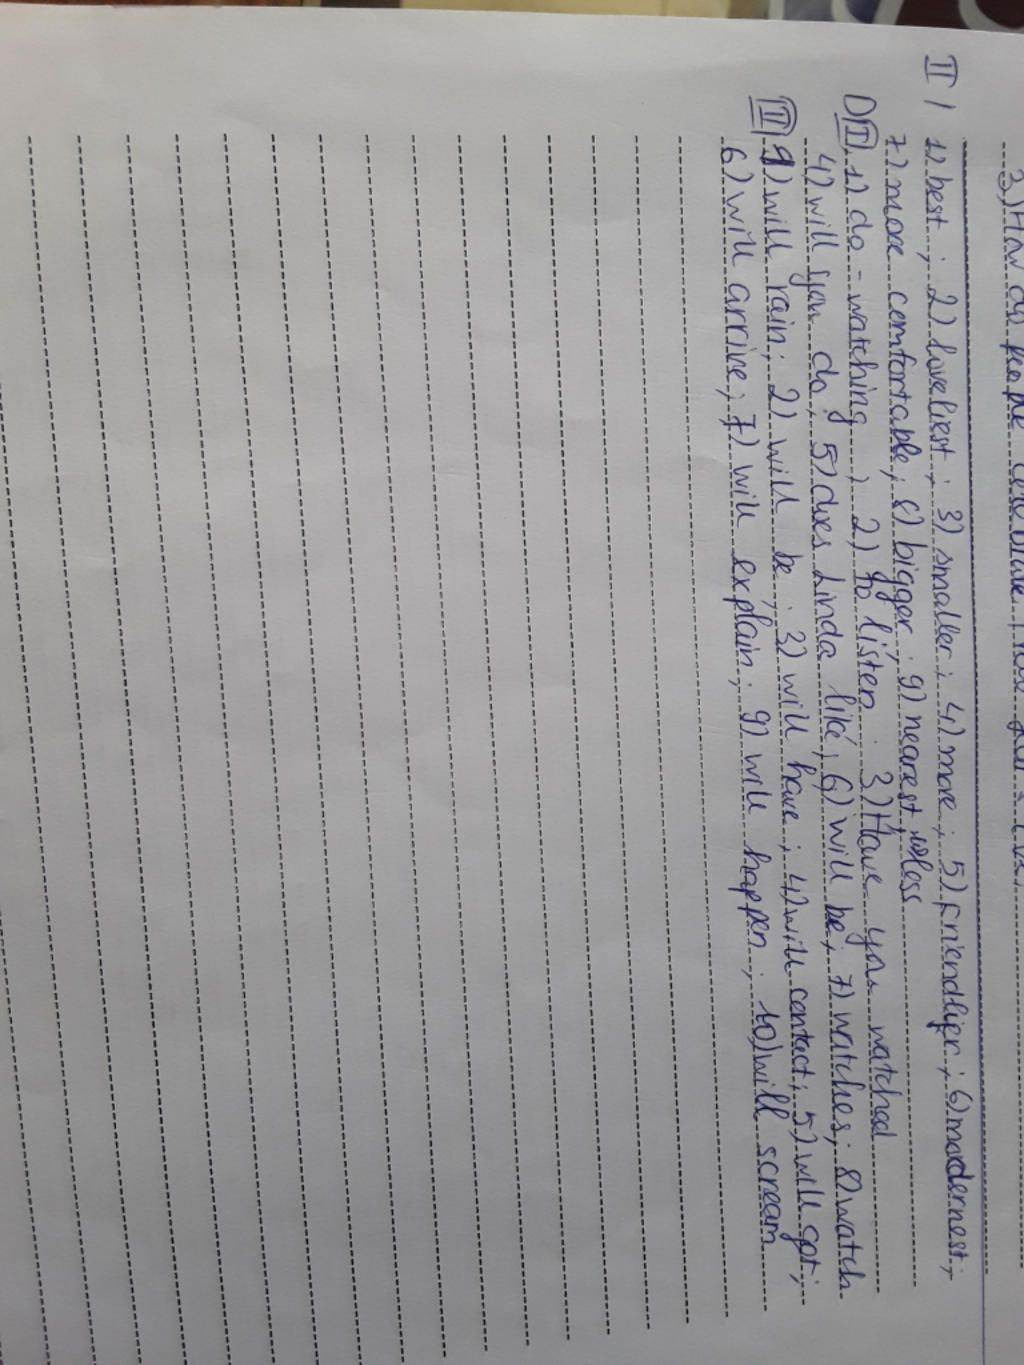 3.) How do people celebrate
II / 1) best ; 2) loveliest ; 3) smaller ; 4) more ; 5) friendlier ; 6) modernest ;
7) more comfortable ; 8) bigger ; 9) nearest ; 10) less
D I 1) do - watching ; 2) to listen ; 3) Have you watched
4) will you do ; 5) does Linda like ; 6) will be ; 7) watches ; 8) watch
II 1) will rain ; 2) will be ; 3) will have ; 4) will contact ; 5) will get ;
6) will arrive ; 7) will explain ; 9) will happen ; 10) will scream